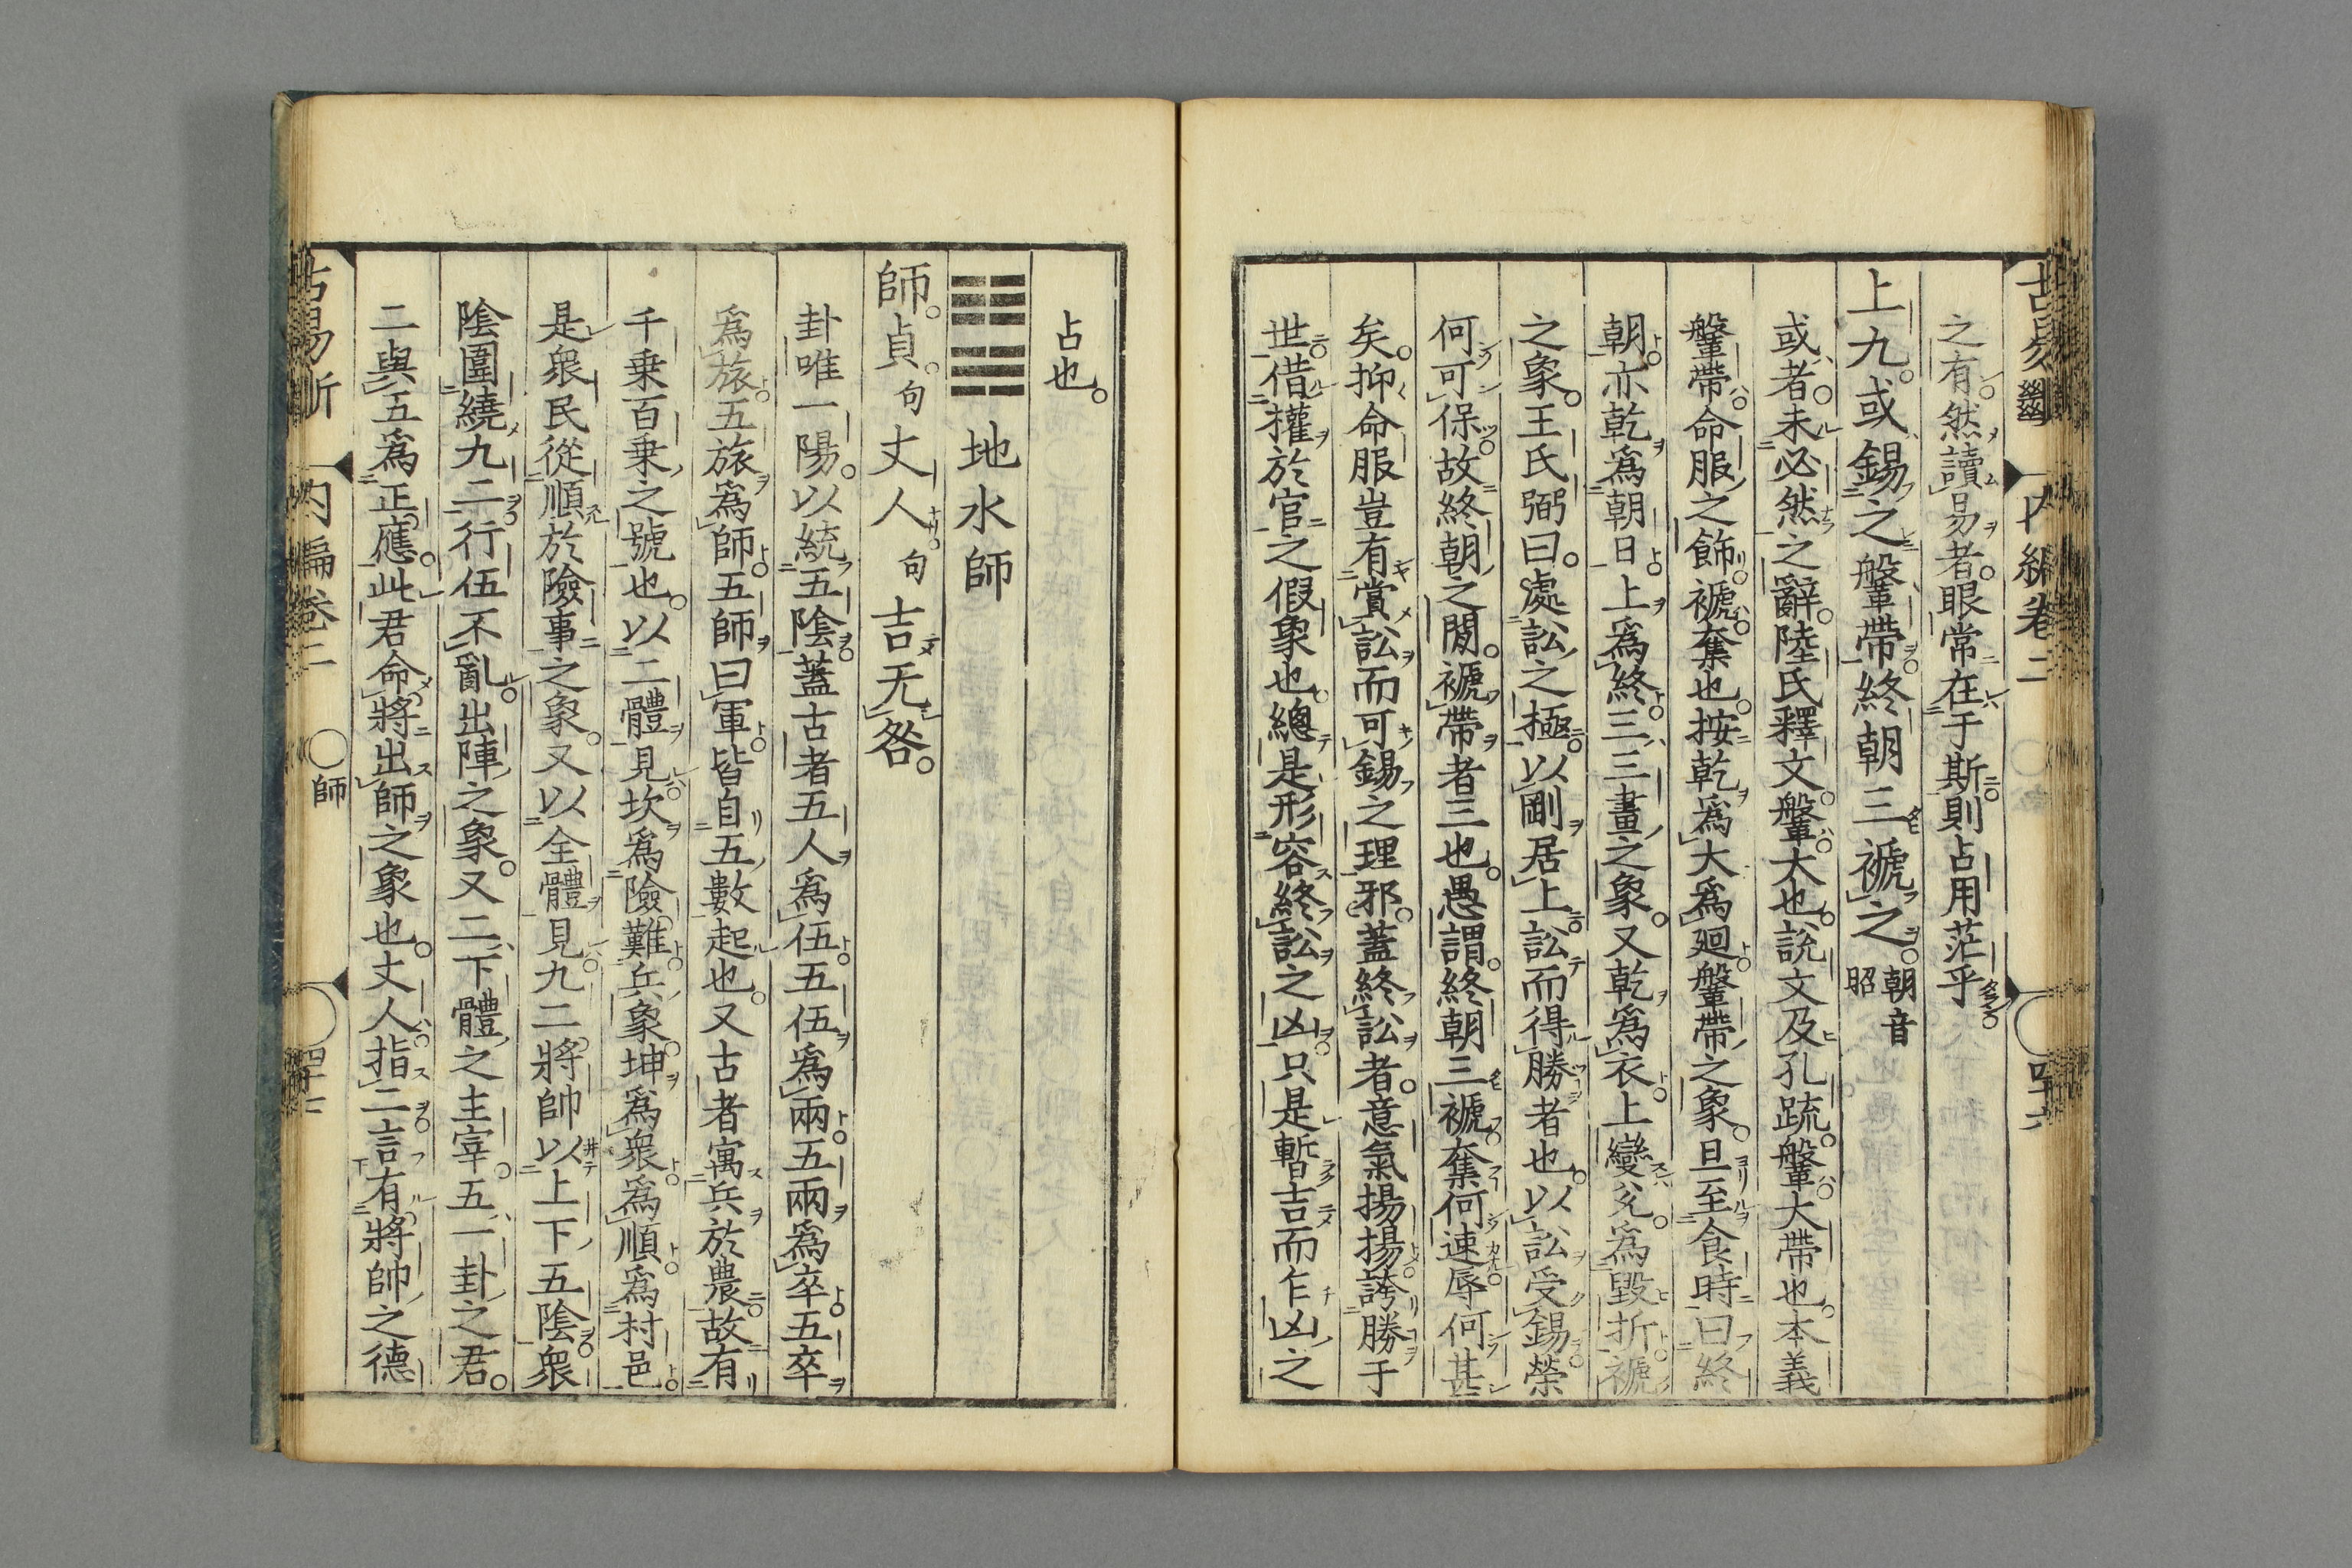 之有然讀易者眼常在于斯則占用茫乎
上九。或錫之鞶帶終朝三褫之。朝音昭
或者未必然之辭。陸氏釋文。鞶大也。說文及孔疏。鞶大帶也。本義
鞶帶命服之飾。褫奪也。按乾爲大爲廻鞶帶之象。旦至食時曰終
朝。亦乾爲朝日。上爲終。三三畫之象。又乾爲衣。上變兌。爲毀折褫
之象。王氏弼曰。處訟之極。以剛居上。訟而得勝者也。以訟受錫榮
何可保。故終朝之間。褫帶者三也。愚謂。終朝三褫奪何速。辱何甚
矣。抑命服豈有賞訟而可錫之理邪。蓋終訟者。意氣揚揚誇勝于
世。借權於官之假象也。總是形容終訟之凶。只是暫吉而乍凶之
占也。
䷆地水師
師。貞。句丈人。句吉无咎。
卦唯一陽。以統五陰。蓋古者五人爲伍。五伍爲兩。五兩爲卒。五卒
爲旅。五旅爲師。五師曰軍。皆自五數起也。又古者寓兵於農。故有
千乘百乘之號也。以二體見。坎爲險難。兵象。坤爲衆。爲順。爲村邑。
是衆民從順於險事之象。又以全體見。九二將帥以上下五陰衆
陰圍繞九二。行伍不亂。出陣之象。又二下體之主宰。五一卦之君。
二與五爲正應。此君命將出師之象也。丈人指二言。有將帥之德
古易斷
內編卷二
師